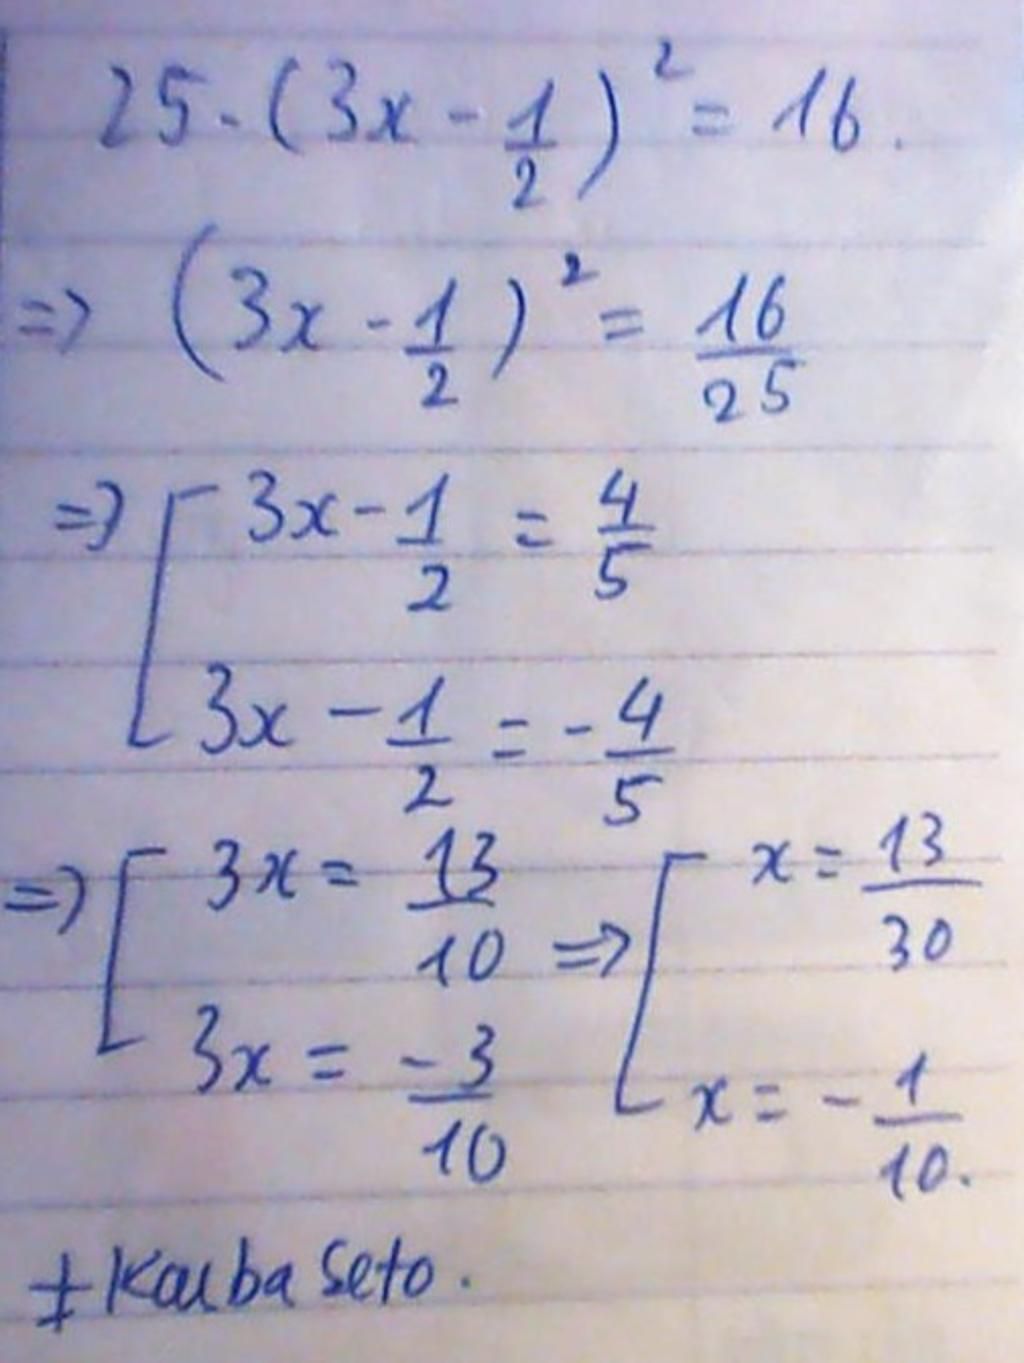 25.(3x - 1/2)² = 16.
=> (3x - 1/2)² = 16/25
=> [ 3x - 1/2 = 4/5
3x - 1/2 = - 4/5
=> [ 3x = 13/10 => [ x = 13/30
3x = -3/10 x = - 1/10.
+ Kaiba Seto.